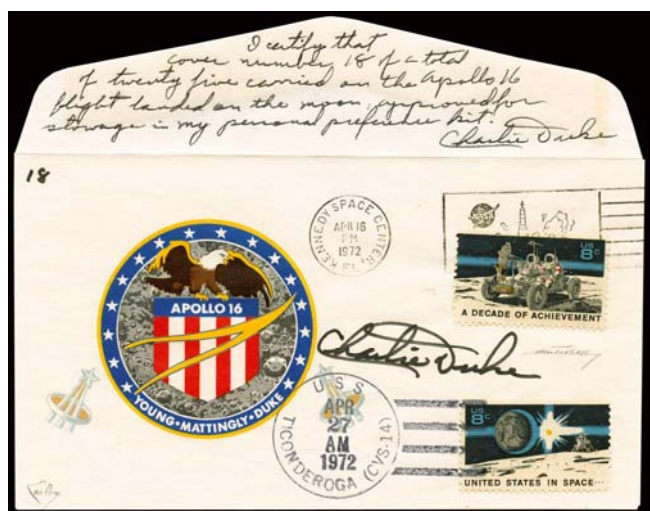 I certify that
cover number 18 of a total
of twenty five carried on the Apollo 16
flight landed on the moon, approved for
stowage in my personal preference kit.
Charlie Duke
18
KENNEDY SPACE CENTER, FL.
APR 16
PM
1972
NASA
US
8c
A DECADE OF ACHIEVEMENT
APOLLO 16
YOUNG • MATTINGLY • DUKE
Charlie Duke
USS
TICONDEROGA (CVS-14)
APR
27
AM
1972
US
8c
UNITED STATES IN SPACE...